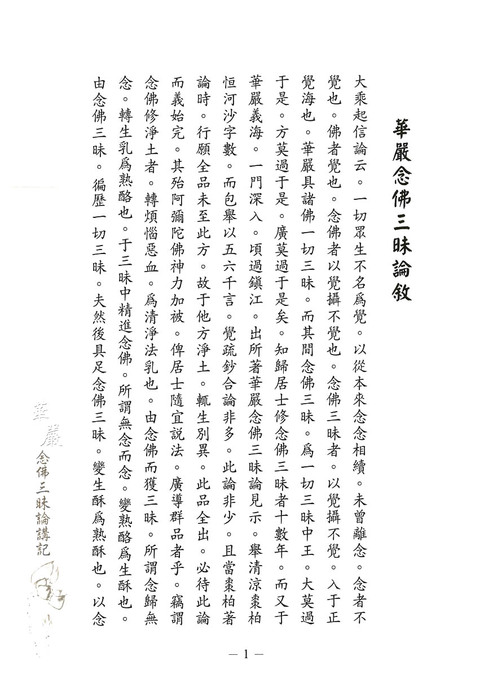 華嚴念佛三昧論敘
大乘起信論云。一切眾生不名為覺。以從本來念念相續。未曾離念。念者不
覺也。佛者覺也。念佛者以覺攝不覺也。念佛三昧者。以覺攝不覺。入于正
覺海也。華嚴具諸佛一切三昧。而其間念佛三昧。為一切三昧中王。大莫過
于是。方莫過于是。廣莫過于是矣。知歸居士修念佛三昧者十數年。而又于
華嚴義海。一門深入。頃過鎮江。出所著華嚴念佛三昧論見示。舉清涼棗柏
恒河沙字數。而包舉以五六千言。覺疏鈔合論非多。此論非少。且當棗柏著
論時。行願全品未至此方。故于他方淨土。輒生別異。此品全出。必待此論
而義始完。其殆阿彌陀佛神力加被。俾居士隨宜說法。廣導群品者乎。竊謂
念佛修淨土者。轉煩惱惡血。為清淨法乳也。由念佛而獲三昧。所謂念歸無
念。轉生乳為熟酪也。于三昧中精進念佛。所謂無念而念。變熟酪為生酥也。
由念佛三昧。徧歷一切三昧。夫然後具足念佛三昧。變生酥為熟酥也。以念
華嚴
念佛三昧論講記
— 1 —